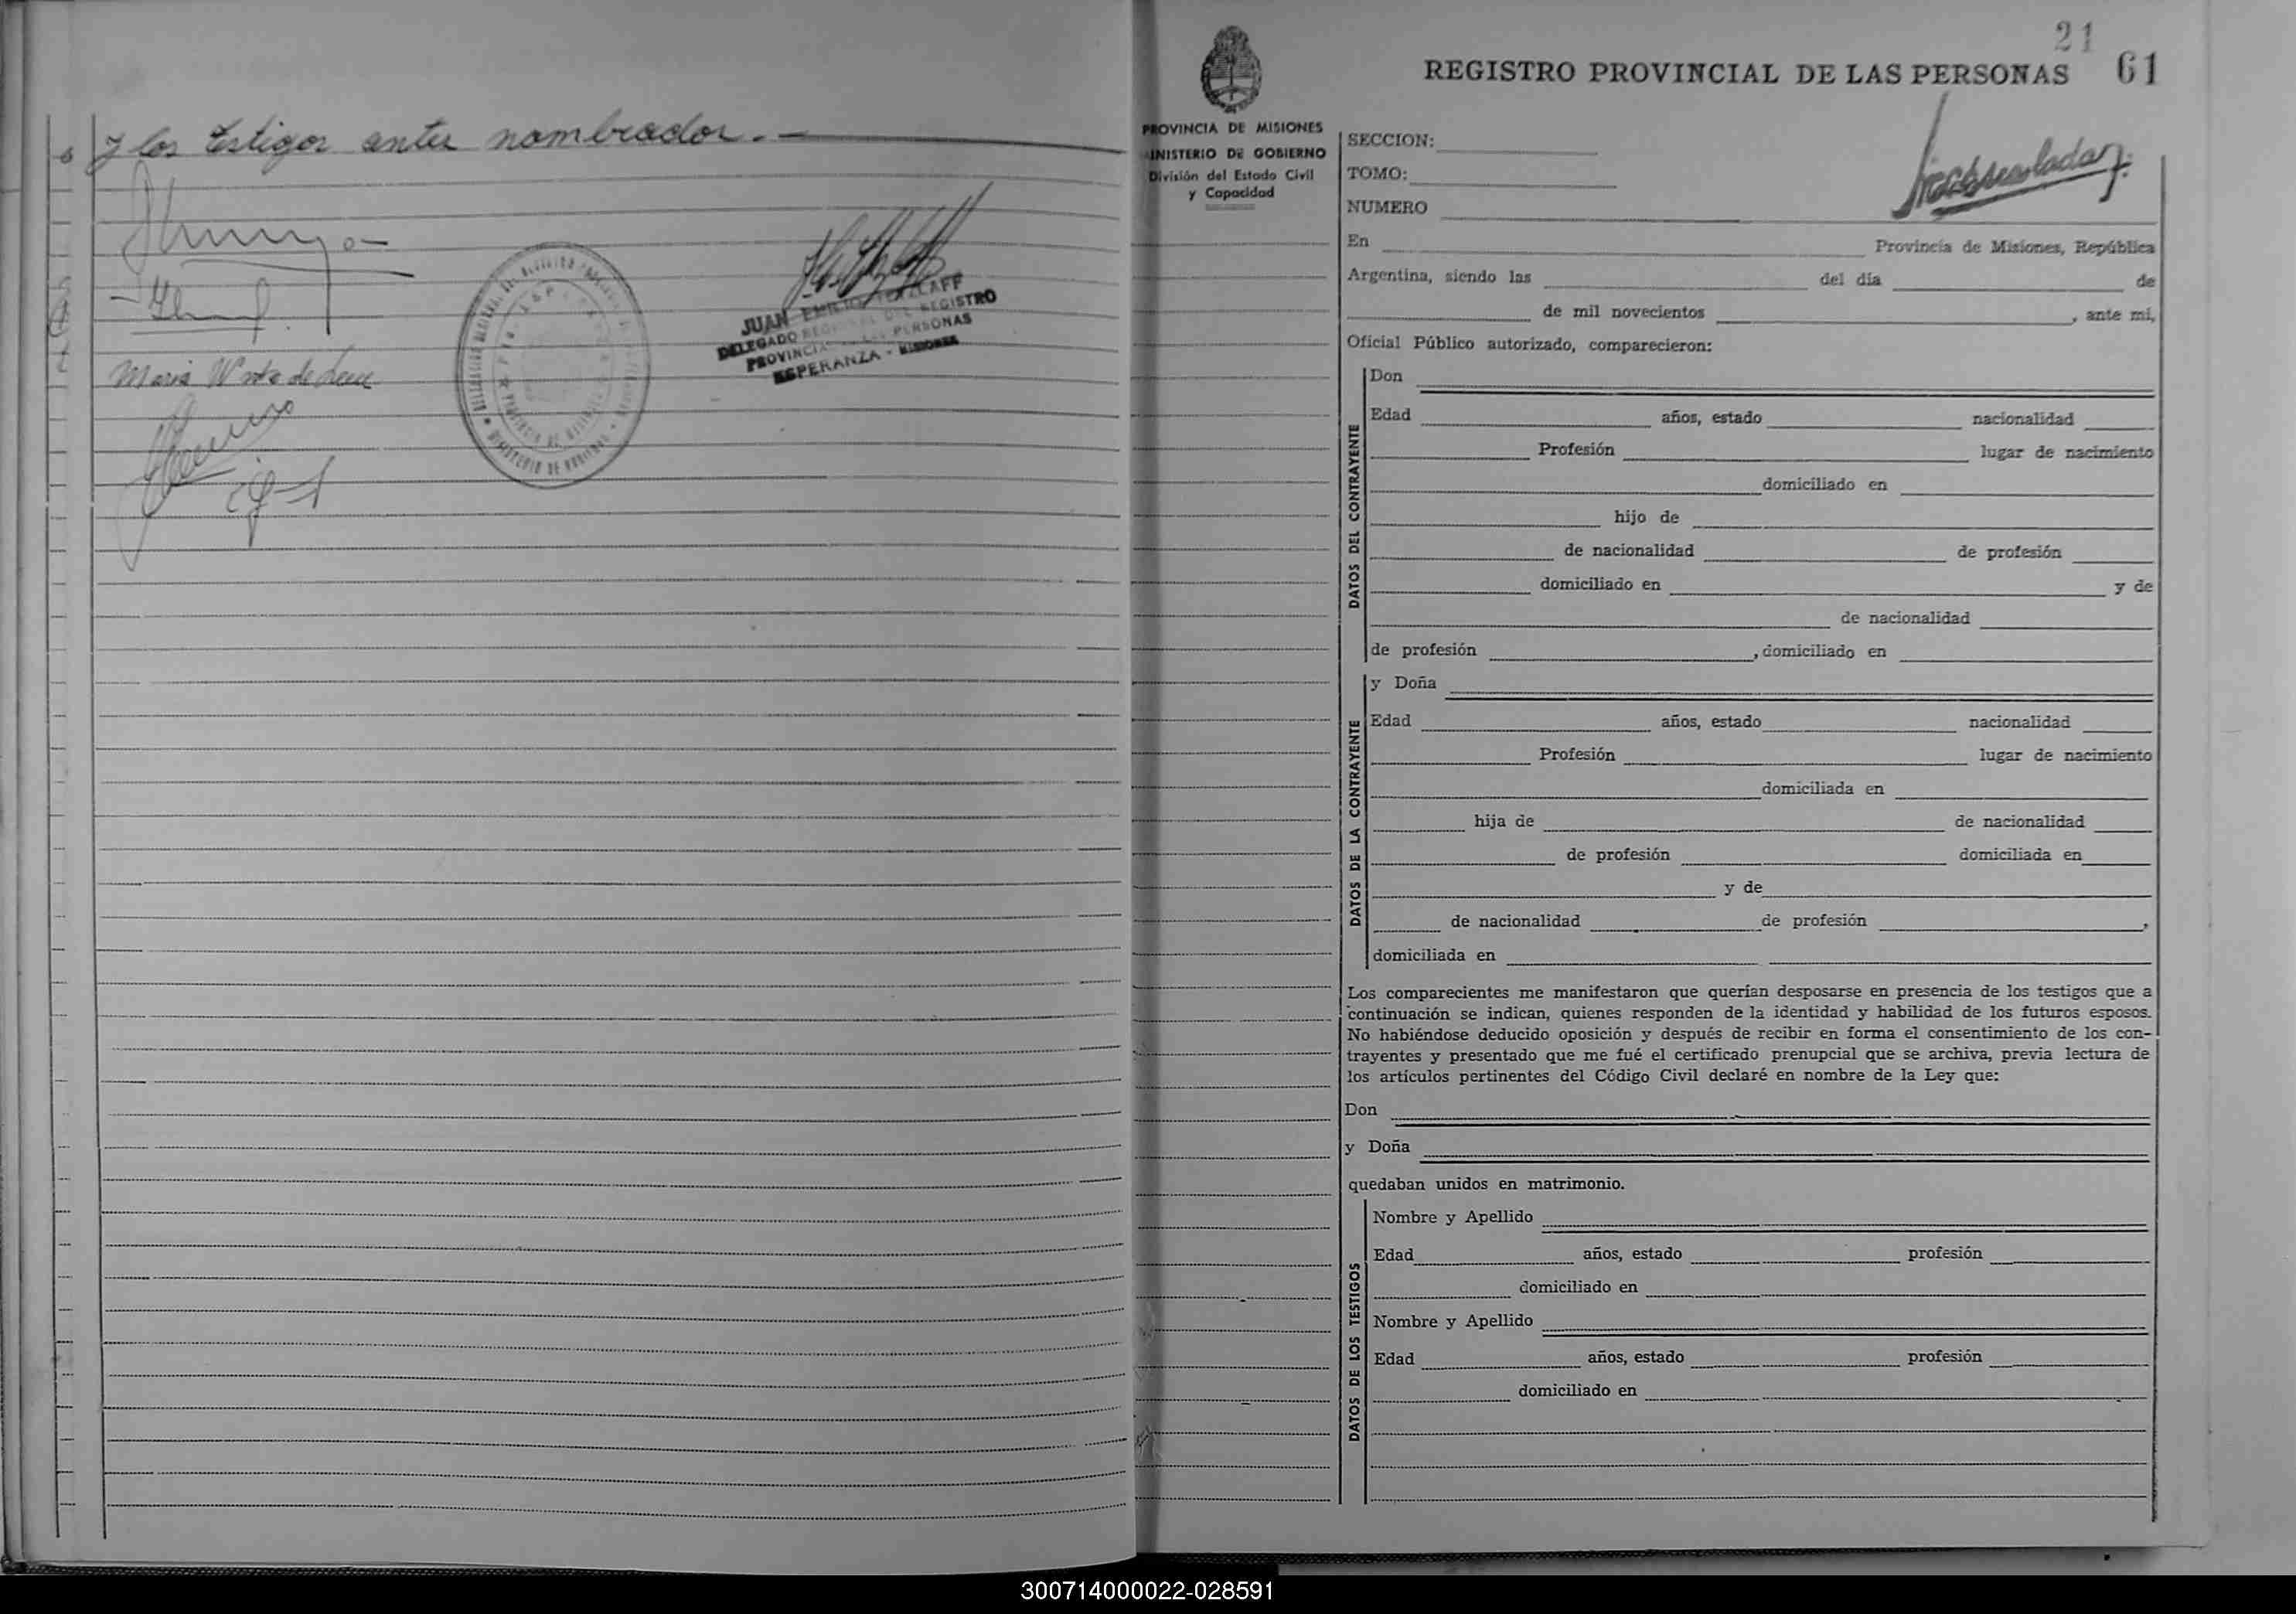 y los testigos antes nombrados. —
JUAN EMILIO
DELEGADO REGIONAL DEL REGISTRO
PROVINCIAL DE LAS PERSONAS
ESPERANZA - MISIONES
21
REGISTRO PROVINCIAL DE LAS PERSONAS 61
PROVINCIA DE MISIONES
MINISTERIO DE GOBIERNO
División del Estado Civil
y Capacidad
SECCION:
TOMO:
NUMERO
En Provincia de Misiones, República
Argentina, siendo las del día de
de mil novecientos , ante mi,
Oficial Público autorizado, comparecieron:
DATOS DEL CONTRAYENTE
Don
Edad años, estado nacionalidad
Profesión lugar de nacimiento
domiciliado en
hijo de
de nacionalidad de profesión
domiciliado en y de
de nacionalidad
de profesión , domiciliado en
DATOS DE LA CONTRAYENTE
y Doña
Edad años, estado nacionalidad
Profesión lugar de nacimiento
domiciliada en
hija de de nacionalidad
de profesión domiciliada en
y de
de nacionalidad de profesión ,
domiciliada en
Los comparecientes me manifestaron que querían desposarse en presencia de los testigos que a
continuación se indican, quienes responden de la identidad y habilidad de los futuros esposos.
No habiéndose deducido oposición y después de recibir en forma el consentimiento de los con-
trayentes y presentado que me fué el certificado prenupcial que se archiva, previa lectura de
los artículos pertinentes del Código Civil declaré en nombre de la Ley que:
Don
y Doña
quedaban unidos en matrimonio.
DATOS DE LOS TESTIGOS
Nombre y Apellido
Edad años, estado profesión
domiciliado en
Nombre y Apellido
Edad años, estado profesión
domiciliado en
300714000022-028591